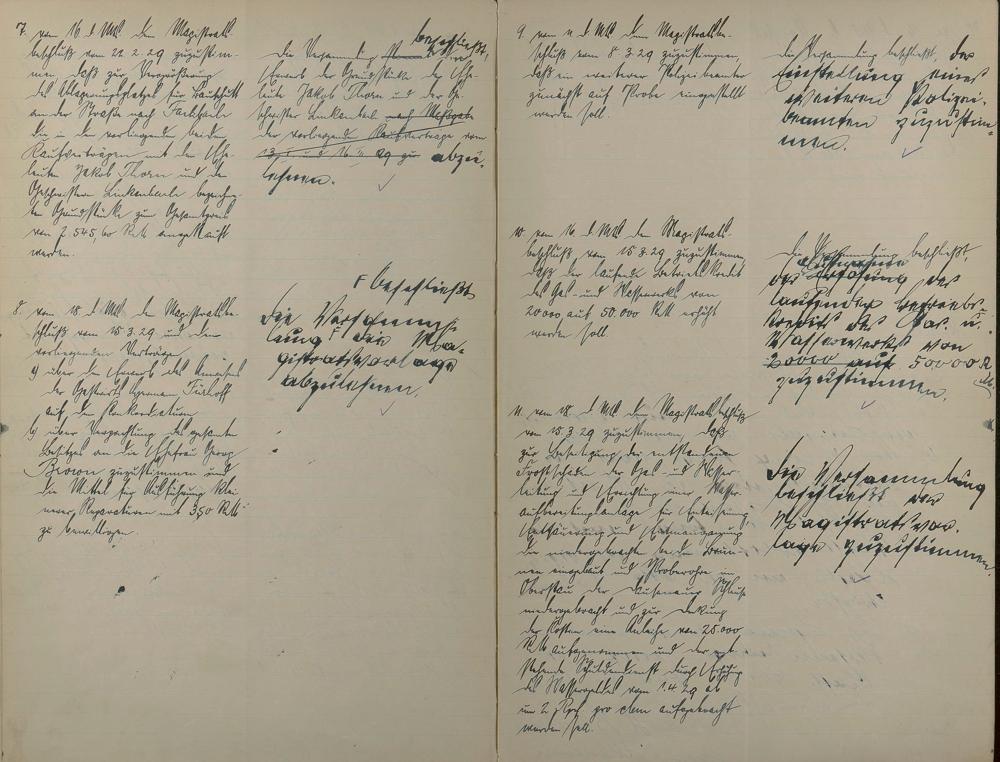 7. vom 16. d. Mts. dem Magistrats-
beschluß vom 22.2.29 zuzustim-
men, daß zur Vergrößerung
an der Straße nach
die in den vorliegenden beiden
Kaufverträgen mit den Ehe-
leuten Jakob Thorn und den
Geschwistern Linkenbach bezeichne-
ten Grundstücke zum Gesamtpreis
von 7 545,60 RM angekauft
werden.
Die Versammlung beschließt,
Erwerb der Grundstücke der Ehe-
leute Jakob Thorn und der Ge-
schwister Linkenbach nach Maßgabe
der vorliegenden Kaufverträge vom
13. I. u. d. 16. II. 29 zu abzu-
lehnen.
8. vom 18. d. Mts. dem Magistratsbe-
schluß vom 15.3.29 und dem
vorliegenden Verträge
a) über den Erwerb des Anwesens
der Gastwirts Hermann
auf der
b) über Verpachtung des gesamten
Besitzes an die Ehefrau Georg
Braun zuzustimmen und
die Mittel für Ausführung klei-
nerer Reparaturen mit 350 RM
zu bewilligen.
F beschließt
Die Versamm-
lung F der Ma-
gistratsvorlage
abzulehnen.
9. vom 11. d. Mts. dem Magistratsbe-
schluß vom 8.3.29 zuzustimmen,
daß ein weiterer Polizeibeamter
zunächst auf Probe eingestellt
werden soll.
Die Versammlung beschließt, der
Einstellung eines
weiteren Polizei-
beamten zuzustim-
men.
10. vom 16. d. Mts. dem Magistrats-
beschluß vom 15.3.29 zuzustimmen,
daß der laufende Betriebskredit
des Gas- und Wasserwerks von
20000 auf 50.000 RM erhöht
werden soll.
Die Versammlung beschließt,
der Erhöhung des
laufenden Betriebs-
kredits des Gas- u.
Wasserwerks von
20000 auf 50000 R
M
zuzustimmen.
11. vom 18. d. Mts. dem Magistratsbeschluß
vom 15.3.29 zuzustimmen, daß
zur Beseitigung der entstandenen
Frostschäden der Gas- und Wasser-
leitung und Errichtung einer Wasser-
aufbereitungsanlage für Enteisung,
Entsäuerung und Entmanganung
die niedergebrachten beiden Brun-
nen eingebaut und Proberohre im
Oberstau der Schleuse
niedergebracht und zur Deckung
der Kosten eine Anleihe von 25.000
RM aufgenommen und der ent-
stehende Schuldendienst durch Erhöhung
des Wassergeldes vom 1.4.29 ab
um 2 Rpf. pro cbm aufgebracht
werden soll.
Die Versammlung
beschließt der
Magistratsvor-
lage zuzustimmen.